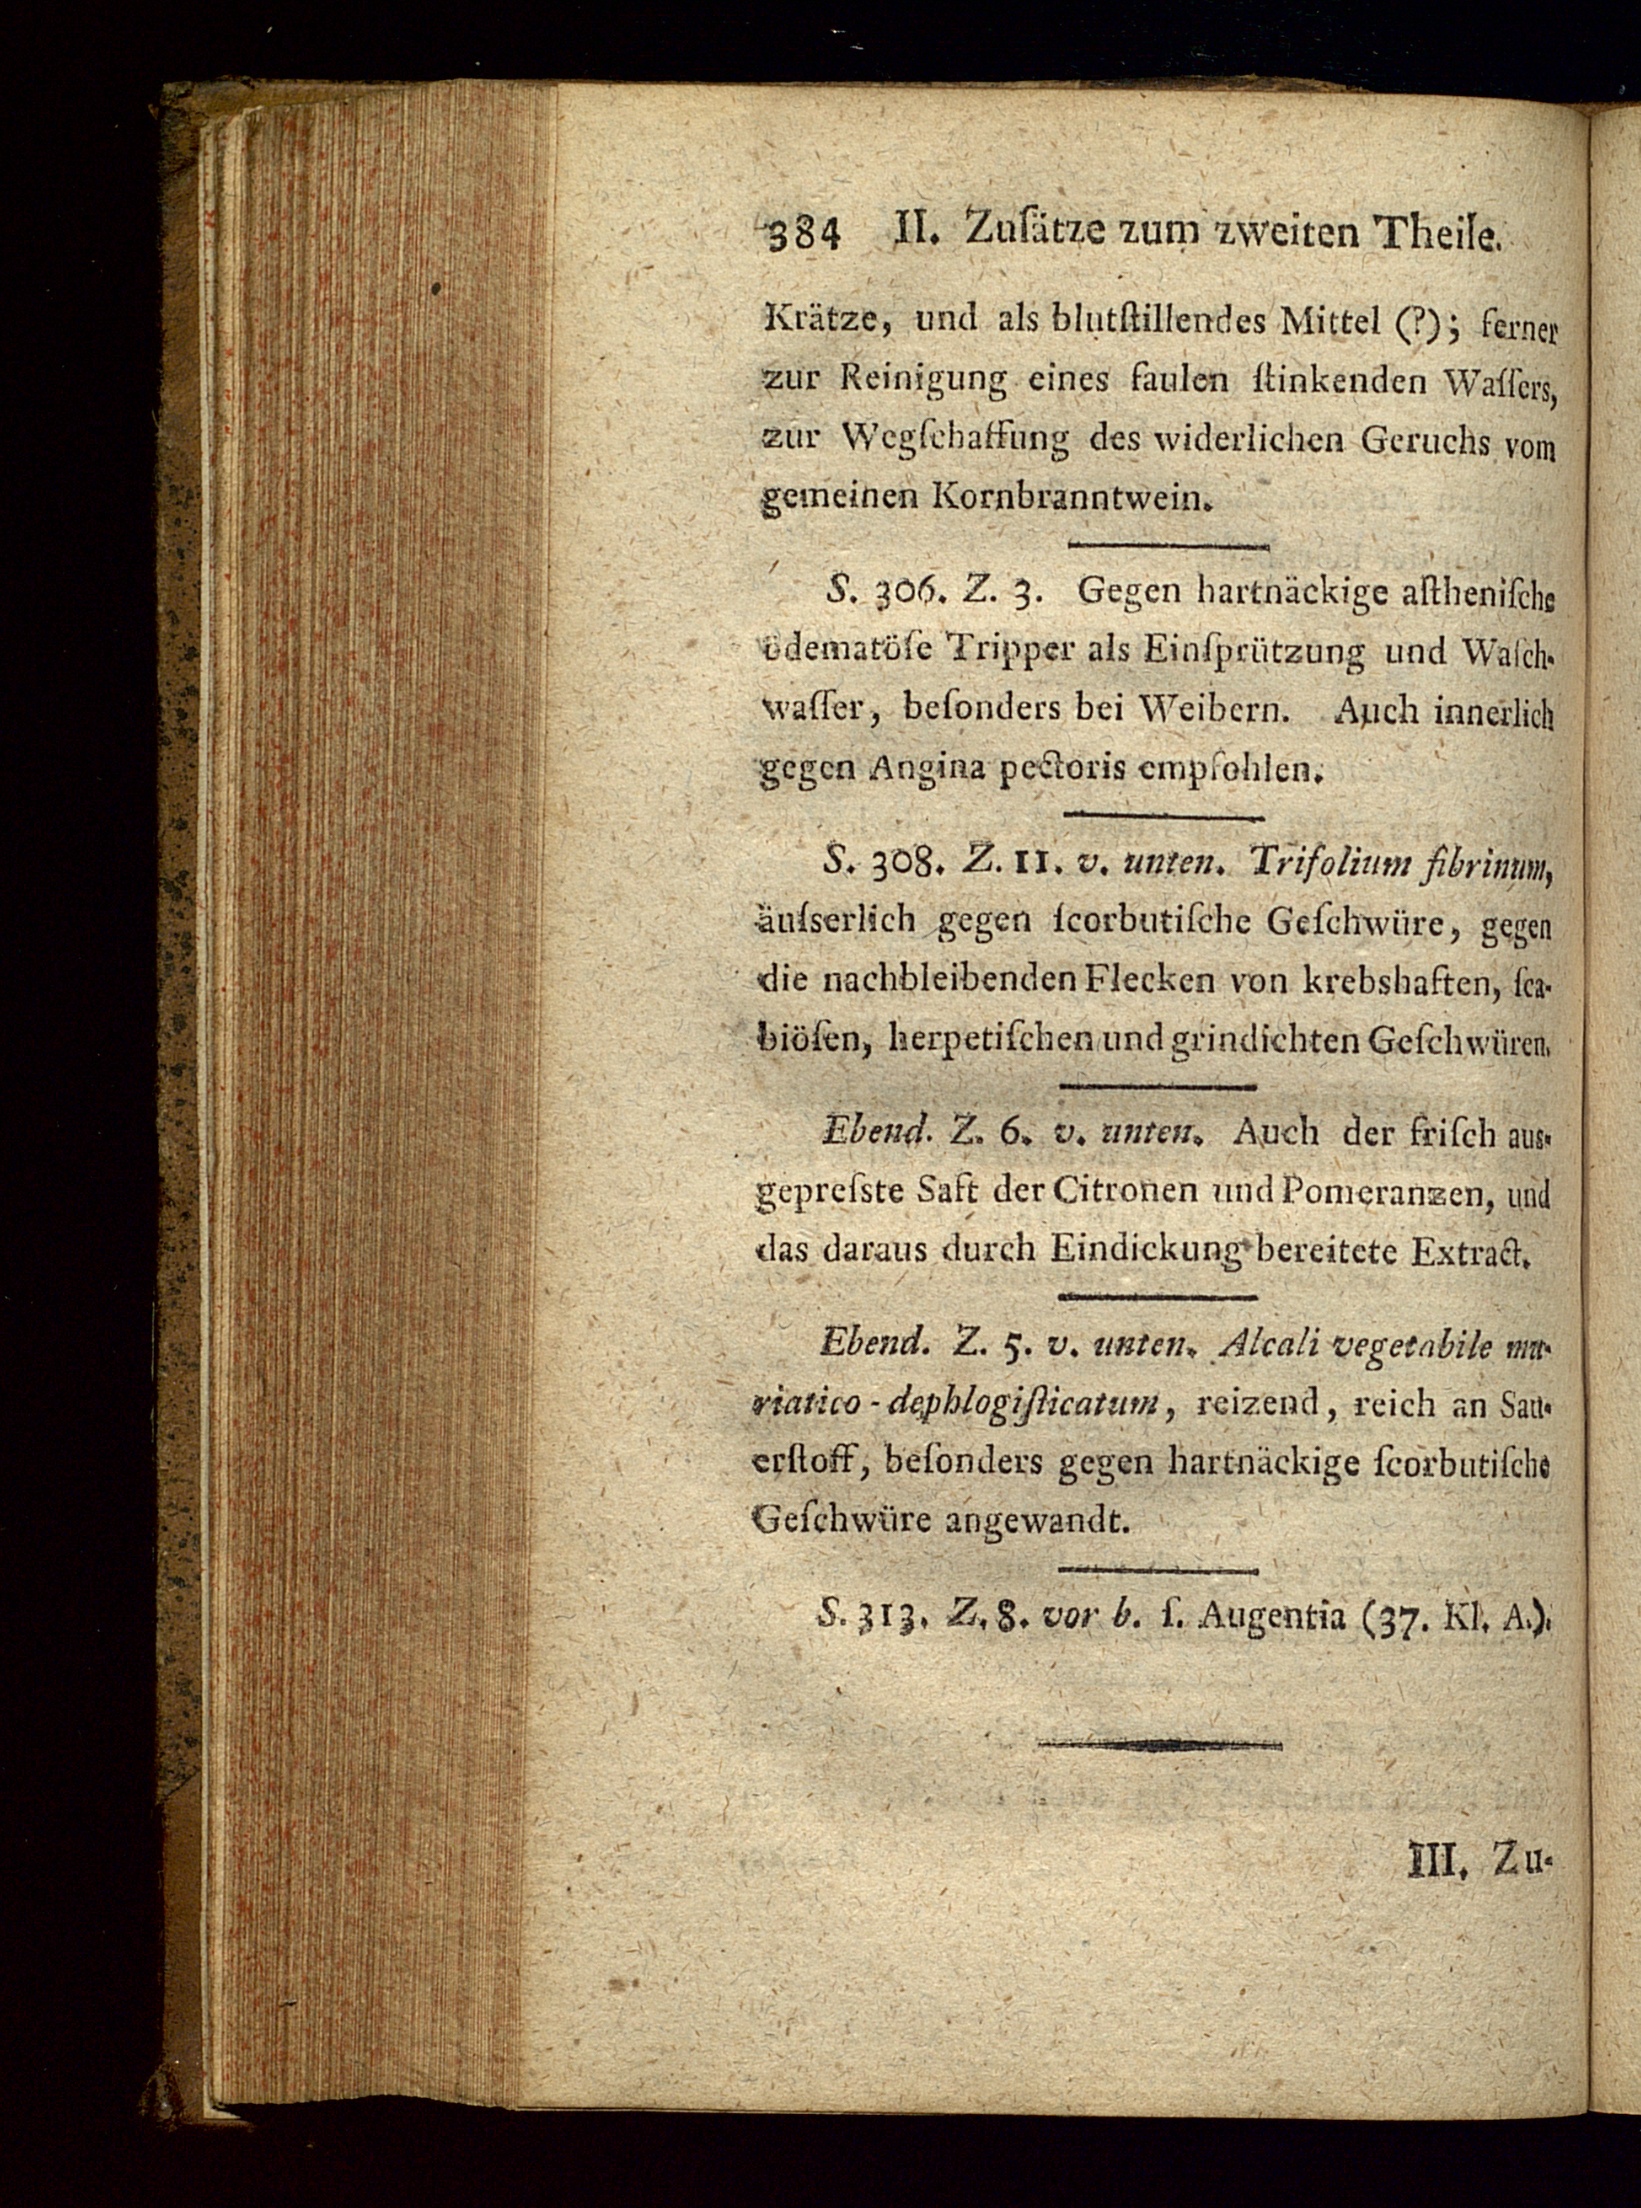 384 II. Zuſätze zum zweiten Theile.
Krätze, und als blutſtillendes Mittel (?); ferner
zur Reinigung eines faulen ſtinkenden Waſſers,
zur Wegſchaffung des widerlichen Geruchs vom
gemeinen Kornbranntwein.
S. 306. Z. 3. Gegen hartnäckige aſtheniſche
ödematöſe Tripper als Einſprützung und Waſch-
waſſer, beſonders bei Weibern. Auch innerlich
gegen Angina pectoris empfohlen.
S. 308. Z. 11. v. unten. Trifolium fibrinum,
äuſserlich gegen ſcorbutiſche Geſchwüre, gegen
die nachbleibenden Flecken von krebshaften, ſca-
biöſen, herpetiſchen und grindichten Geſchwüren.
Ebend. Z. 6. v. unten. Auch der friſch aus-
gepreſste Saft der Citronen und Pomeranzen, und
das daraus durch Eindickung bereitete Extract.
Ebend. Z. 5. v. unten. Alcali vegetabile mu-
riatico-dephlogiſticatum, reizend, reich an Sau-
erſtoff, beſonders gegen hartnäckige ſcorbutiſche
Geſchwüre angewandt.
S. 313. Z. 8. vor b. ſ. Augentia (37. Kl. A.).
III. Zu-